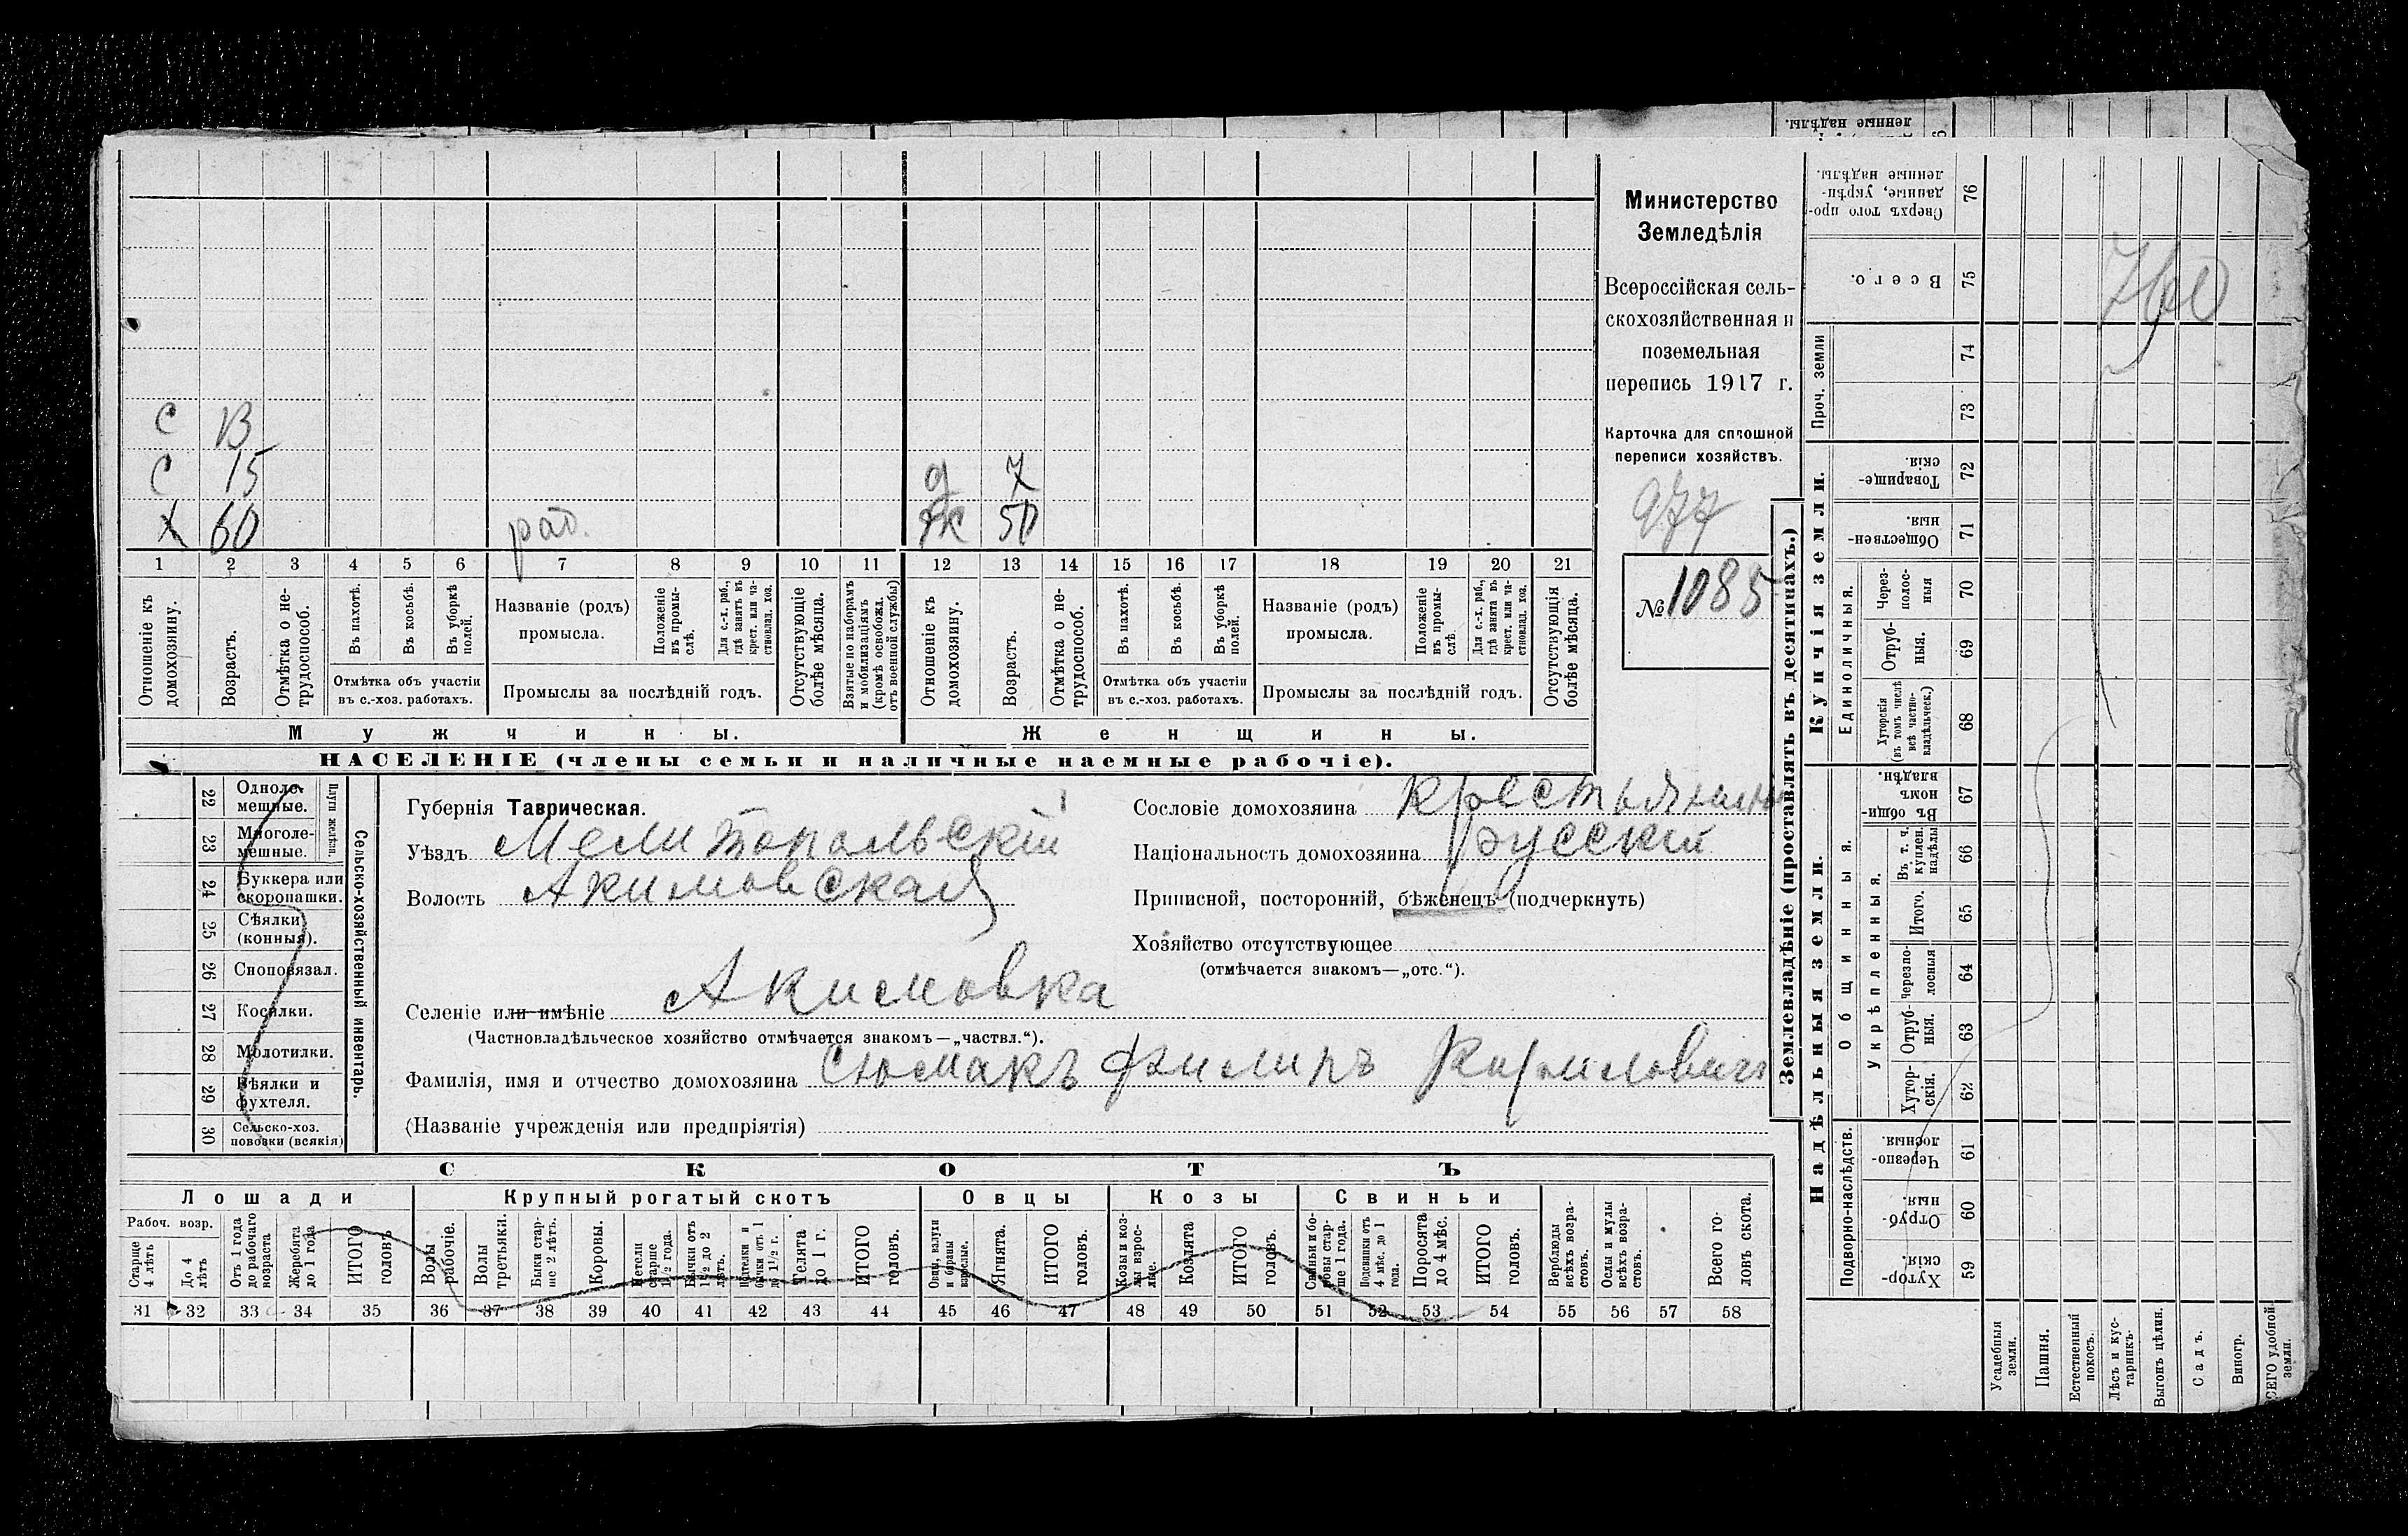 Министерство
Земледѣлія
Всероссійская сель-
скохозяйственная и
поземельная
перепись 1917 г.
Карточка для сплошной
переписи хозяйствъ.
977
№ 1085
С В
С 15
Х 60 раб.
д 7
ж 50
1 2 3 4 5 6 7 8 9 10 11 12 13 14 15 16 17 18 19 20 21
Отношеніе къ домохозяину.
Возрастъ.
Отмѣтка о не-трудоспособ.
Въ пахотѣ.
Въ косьбѣ.
Въ уборкѣ полей.
Отмѣтка объ участіи
въ с.-хоз. работахъ.
Названіе (родъ)
промысла.
Положеніе въ промы-слѣ.
Для с.-х. раб., гдѣ занятъ въ крест. или ча-стновлад. хоз.
Промыслы за послѣдній годъ.
Отсутствующіе болѣе мѣсяца.
Взятые по наборамъ и мобилизаціямъ (кромѣ освобожд. отъ военной службы)
Отношеніе къ домохозяину.
Возрастъ.
Отмѣтка о не-трудоспособ.
Въ пахотѣ.
Въ косьбѣ.
Въ уборкѣ полей.
Отмѣтка объ участіи
въ с.-хоз. работахъ.
Названіе (родъ)
промысла.
Положеніе въ промы-слѣ.
Для с.-х. раб., гдѣ занята въ крест. или ча-стновлад. хоз.
Промыслы за послѣдній годъ.
Отсутствующія болѣе мѣсяца.
Мужчины.
Женщины.
НАСЕЛЕНІЕ (члены семьи и наличные наемные рабочіе).
Сельско-хозяйственный инвентарь.
Плуги желѣзн.
22 Одноле-мешные.
23 Многоле-мешные.
24 Буккера или скоропашки.
25 Сѣялки (конныя).
26 Сноповязал.
27 Косилки.
28 Молотилки.
29 Вѣялки и фухтеля.
30 Сельско-хоз. повозки (всякія)
Губернія Таврическая.
Уѣздъ Мелитопольскій
Волость Акимовская
Селеніе или имѣніе Акимовка
(Частновладѣльческое хозяйство отмѣчается знакомъ—„частвл.“).
Фамилія, имя и отчество домохозяина Сюмакъ Филипъ
(Названіе учрежденія или предпріятія)
Сословіе домохозяина крестьянинъ
Національность домохозяина русскій
Приписной, посторонній, бѣженецъ (подчеркнуть)
Хозяйство отсутствующее
(отмѣчается знакомъ—„отс.“).
СКОТЪ
Лошади Крупный рогатый скотъ Овцы Козы Свиньи
Рабоч. возр.
Старше 4 лѣтъ
До 4 лѣтъ
Отъ 1 года до рабочаго возраста
Жеребята до 1 года
ИТОГО головъ
Волы рабочіе.
Волы третьяки.
Быки стар-ше 2 лѣтъ.
Коровы.
Нетели старше 1½ года.
Бычки отъ 1½ до 2 лѣтъ.
Нетелки и бычки отъ 1 до 1½ г.
Телята до 1 г.
ИТОГО головъ.
Овцы, валухи и бараны взрослые.
Ягнята.
ИТОГО головъ.
Козы и коз-лы взрос-лые.
Козлята
ИТОГО головъ.
Свиньи и бо-ровы стар-ше 1 года.
Подсвинки отъ 4 мѣс. до 1 года.
Поросята до 4 мѣс.
ИТОГО головъ.
Верблюды всѣхъ возра-стовъ.
Ослы и мулы всѣхъ возра-стовъ.
Всего го-ловъ скота.
31 32 33 34 35 36 37 38 39 40 41 42 43 44 45 46 47 48 49 50 51 52 53 54 55 56 57 58
Землевладѣніе (проставлять въ десятинахъ.)
Купчія земли.
Надѣльныя земли.
Проч. земли
Единоличныя.
Общинныя.
Укрѣпленныя.
Подворно-наслѣдств.
76 Сверхъ того про-данные, укрѣп-ленные надѣлы.
75 Всего.
74
73
72 Товарище-скія.
71 Обществен-ныя.
70 Через-полос-ныя
69 Отруб-ныя.
68 Хуторскія (въ томъ числѣ всѣ частно-владѣльческ.)
67 Въ общи-номъ владѣн.
66 Въ т. ч. куплен. надѣлы
65 Итого.
64 Черезпо-лосныя
63 Отруб-ныя.
62 Хутор-скія.
61 Черезпо-лосныя.
60 Отруб-ныя.
59 Хутор-скія.
Усадебныя земли.
Пашня.
Естественный покосъ.
Лѣсъ и кус-тарникъ.
Выгонъ цѣлин.
Садъ.
Виногр.
удобной земли.
ленные надѣлы.